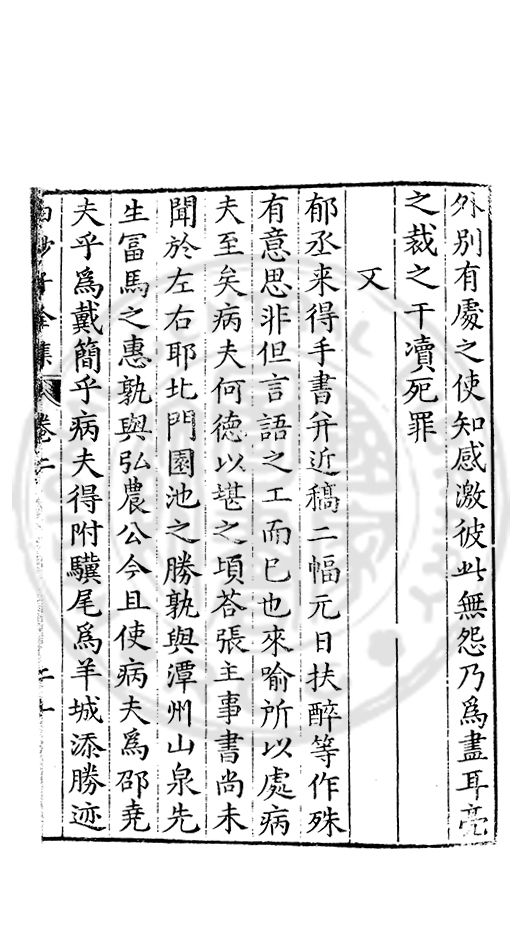 外別有處之使知感激彼此無怨乃爲盡耳亮
之裁之干瀆死罪
又
郁丞来得手書并近稿二幅元日扶醉等作殊
有意思非但言語之工而已也來喻所以處病
夫至矣病夫何德以堪之頃荅張主事書尚未
聞於左右耶北門園池之勝孰與潭州山泉先
生冨馬之惠孰與弘農公今且使病夫爲邵堯
夫乎爲戴簡乎病夫得附驥尾爲羊城添勝迹
白沙子全集 卷二